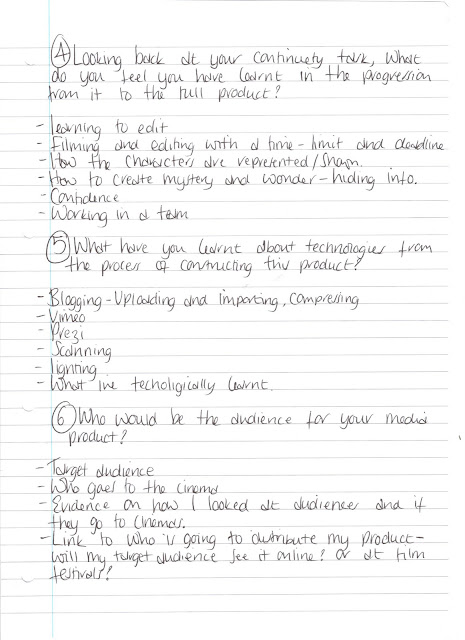 ④ Looking back at your continuety task, What
do you feel you have learnt in the progression
from it to the full product?
- Learning to edit
- Filming and editing with a time-limit and deadline
- How the characters are represented/shown.
- How to create mystery and wonder-hiding info.
- Confidence
- Working in a team
⑤ What have you learnt about technologies from
the process of constructing this product?
- Blogging-Uploading and importing, compressing
- Vimeo
- Prezi
- Scanning
- Lighting
- What ive techoligically learnt.
⑥ Who would be the audience for your media
product?
- Target audience
- Who goes to the cinema
- Evidence on how I looked at audiences and if
they go to cinemas.
- Link to who is going to distribute my product-
will my target audience see it online? or at film
festivals?